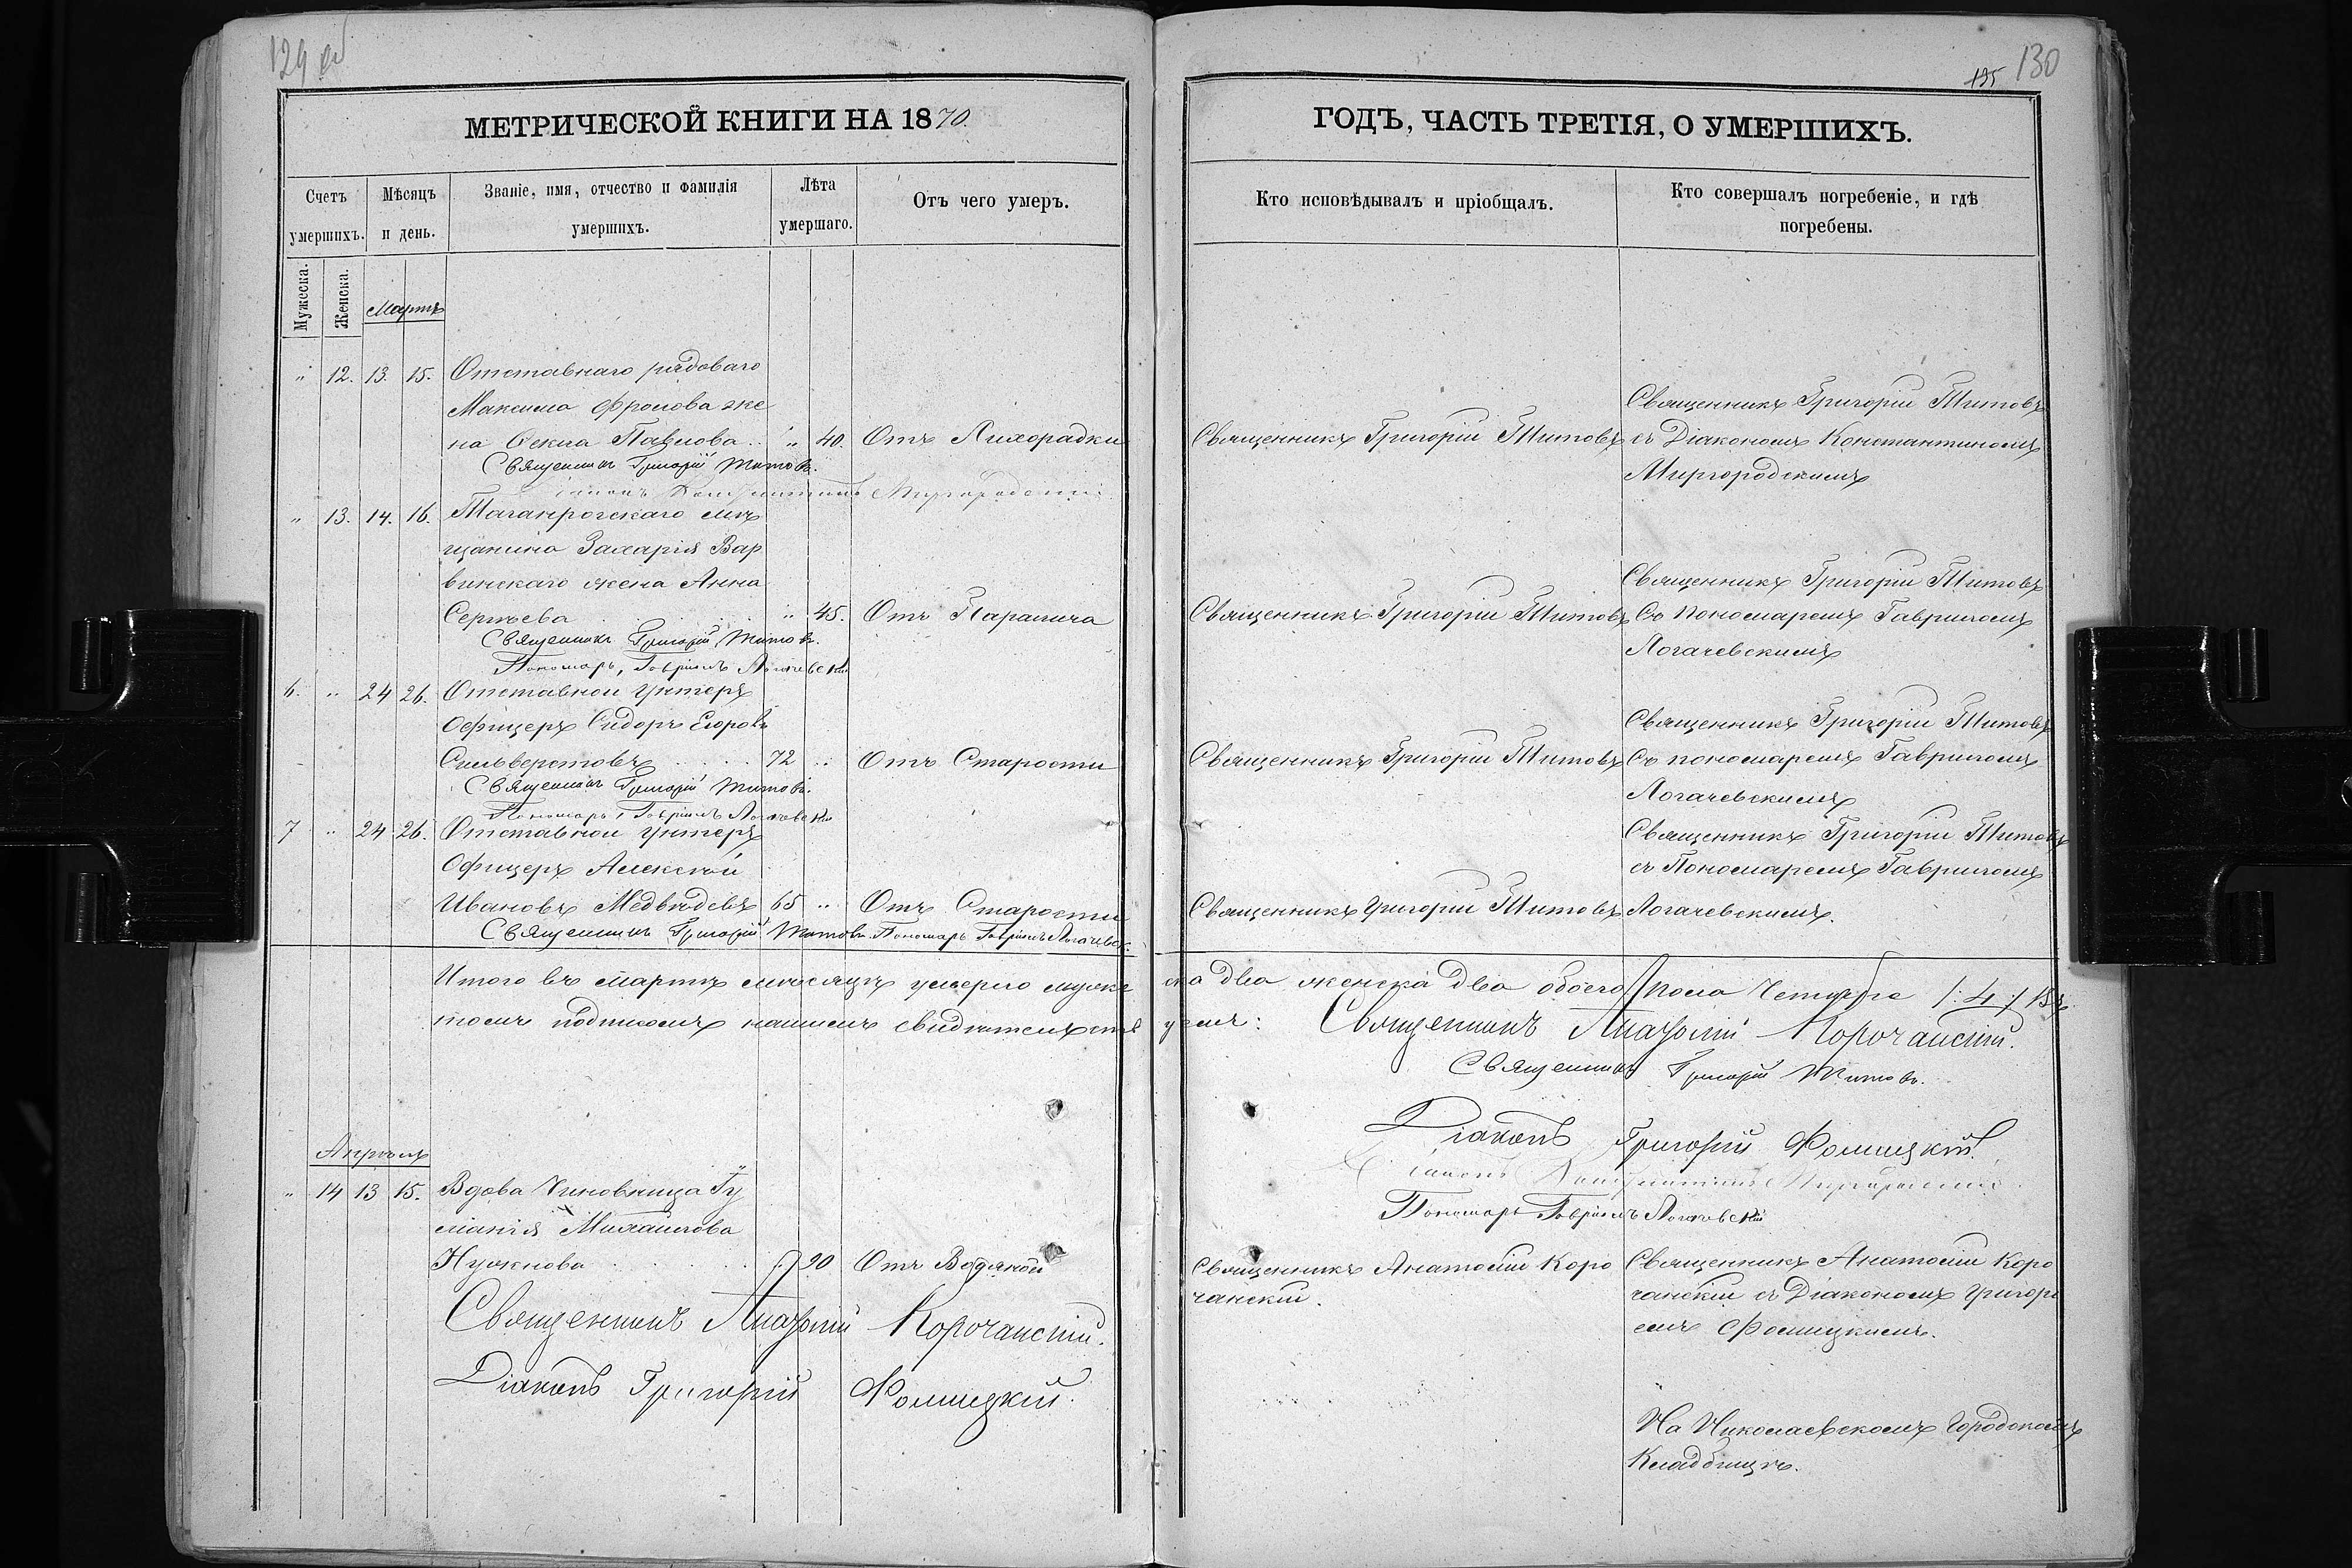 129 об
МЕТРИЧЕСКОЙ КНИГИ НА 1870.
Счетъ умершихъ.
Мѣсяцъ и день.
Званіе, имя, отчество и фамилія умершихъ.
Лѣта умершаго.
Отъ чего умеръ.
Мужеска.
Женска.
Мартъ
" 12. 13. 15. Отставнаго рядоваго
Максима Фролова же
на Ѳекла Павлова.. " 40. Отъ Лихорадки
Священникъ Григорій Титовъ.
Діаконъ Константинъ Миргородскій
" 13. 14. 16. Таганрогскаго мѣ
щанина Захарія Вар
винскаго жена Анна
Сергѣева " 45. Отъ Паралича
Священникъ Григорій Титовъ.
Пономарь, Гавріилъ Логачевскій
6. " 24 26. Отставной Унтеръ
Офицеръ Сидоръ Егоровъ
Сильверстовъ 72 " Отъ Старости
Священникъ Григорій Титовъ.
Пономарь, Гавріилъ Логачевскій
7 " 24 26. Отставной Унтеръ
Офицеръ Алексѣй
Ивановъ Медвѣдевъ 65 " Отъ Старости
Священникъ Григорій Титовъ. Пономарь Гавріилъ Логачевск.
Итого въ мартѣ мѣсяцѣ умерло мужес
томъ подписомъ нашимъ свидѣтельств
Апрѣль
" 14 13 15. Вдова Чиновница Гу
ліанія Михайлова
Нужнова 90 Отъ Водяной
Священникъ Анатолій Корочанскій.
Діаконъ Григорій Фомицкій.
195 130
ГОДЪ, ЧАСТЬ ТРЕТІЯ, О УМЕРШИХЪ.
Кто исповѣдывалъ и пріобщалъ.
Кто совершалъ погребеніе, и гдѣ погребены.
Священникъ Григорій Титовъ
Священникъ Григорій Титовъ съ Діакономъ Константиномъ
Миргородскимъ
Священникъ Григорій Титовъ
Священникъ Григорій Титовъ Съ Пономаремъ Гавриломъ
Логачевскимъ
Священникъ Григорій Титовъ
Священникъ Григорій Титовъ Съ пономаремъ Гавриломъ
Логачевскимъ
Священникъ Григорій Титовъ
съ Пономаремъ Гавриломъ
Священникъ Григорій Титовъ Логачевскимъ.
ка два женска два обоего пола Четыре /:4:/ Въ
уемъ: Священникъ Анатолій Корочанскій.
Священникъ Григорій Титовъ.
Діаконъ Григорій Фомицкій.
Діаконъ Константинъ Миргородскій.
Пономарь Гавріилъ Логачевскій
Священникъ Анатолій Коро
чанскій.
Священникъ Анатолій Коро
чанскій съ Діакономъ Григорі
емъ Фомицкимъ.
На Николаевскомъ Городскомъ
Кладбищѣ.